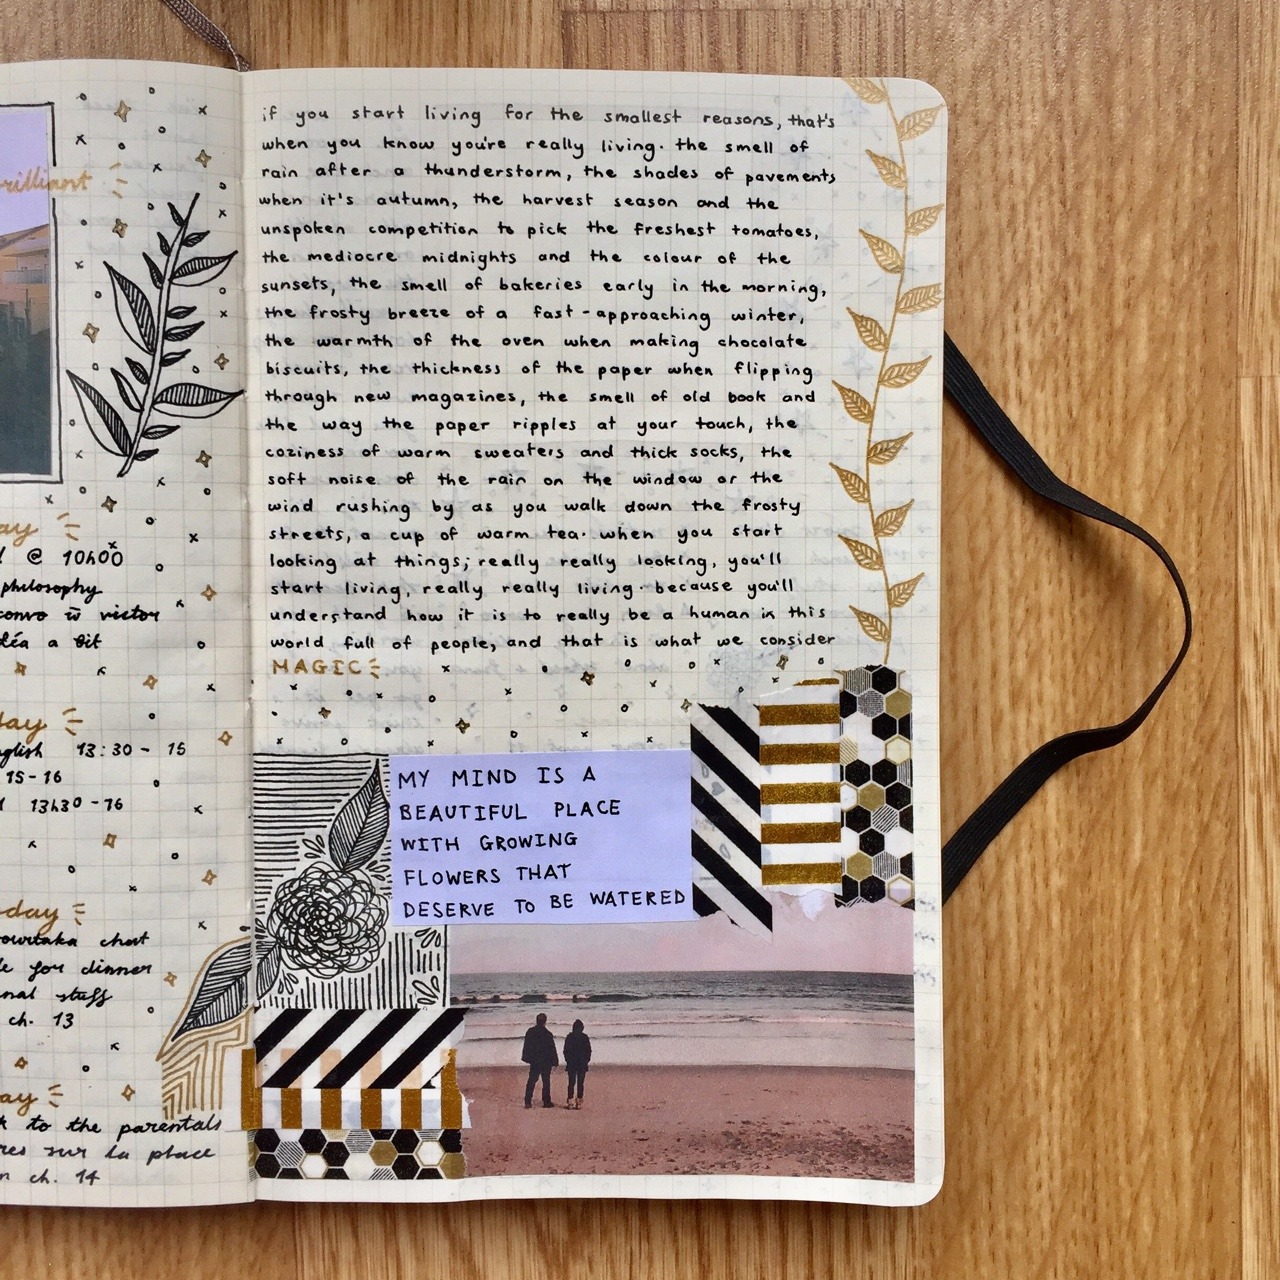 brilliant
@ 10h00
philosophy
convo w̄ victor
a bit
nglish 13:30 - 15
15-16
13h30-16
chat
for dinner
stuff
ch. 13
to the parentals
sur la place
ch. 14
if you start living for the smallest reasons, that's
when you know you're really living. the smell of
rain after a thunderstorm, the shades of pavements
when it's autumn, the harvest season and the
unspoken competition to pick the freshest tomatoes,
the mediocre midnights and the colour of the
sunsets, the smell of bakeries early in the morning,
the frosty breeze of a fast-approaching winter,
the warmth of the oven when making chocolate
biscuits, the thickness of the paper when flipping
through new magazines, the smell of old book and
the way the paper ripples at your touch, the
coziness of warm sweaters and thick socks, the
soft noise of the rain on the window or the
wind rushing by as you walk down the frosty
streets, a cup of warm tea. when you start
looking at things; really really looking, you'll
start living, really really living. because you'll
understand how it is to really be a human in this
world full of people, and that is what we consider
MAGIC
MY MIND IS A
BEAUTIFUL PLACE
WITH GROWING
FLOWERS THAT
DESERVE TO BE WATERED